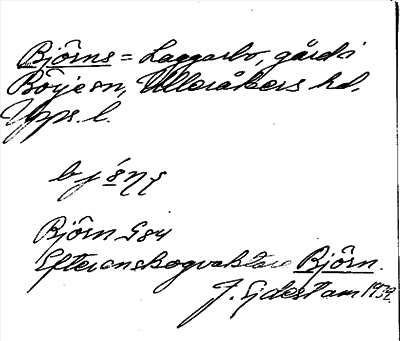 Björns = Laggarbo, gård i
Börje sn, Ulleråkers hd,
Upps. l.
Björn S84
Efter en skogvaktare Björn.
J. Ejdestam 1939.